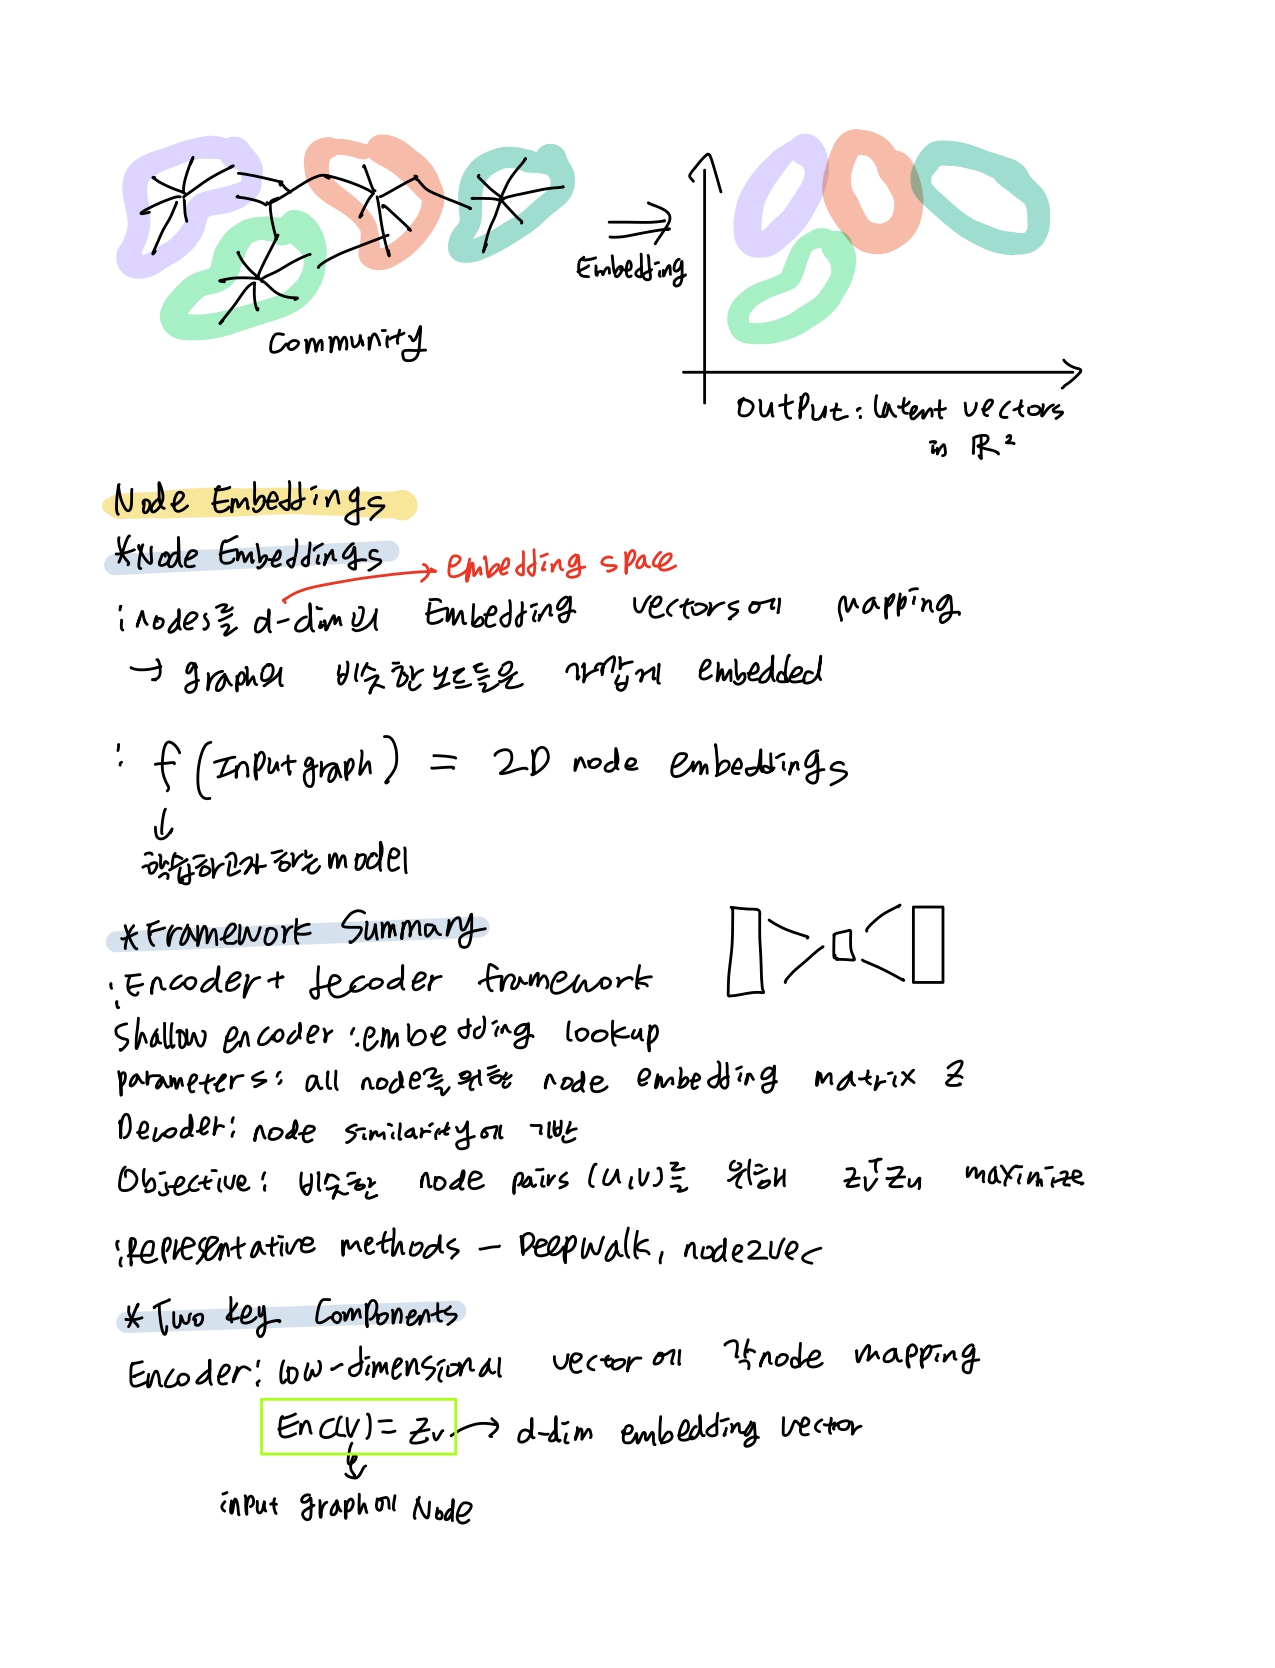 Embedding
Community
Output: latent vectors
in ℝ²
Node Embeddings
*Node Embeddings
→ embedding space
: nodes를 d-dim의 Embedding vectors에 mapping
→ graph의 비슷한 노드들은 가깝게 embedded
: f (Input graph) = 2D node embeddings
↓
학습하고자 하는 model
*Framework Summary
: Encoder + decoder framework
Shallow encoder : embedding lookup
parameters : all node를 위한 node embedding matrix Z
Decoder : node similarity에 기반
Objective : 비슷한 node pairs (u,v)를 위해 z_v^T z_u maximize
: representative methods – Deepwalk, node2vec
* Two key Components
Encoder : low-dimensional vector에 각 node mapping
Enc(v) = z_v → d-dim embedding vector
↓
input graph에 Node